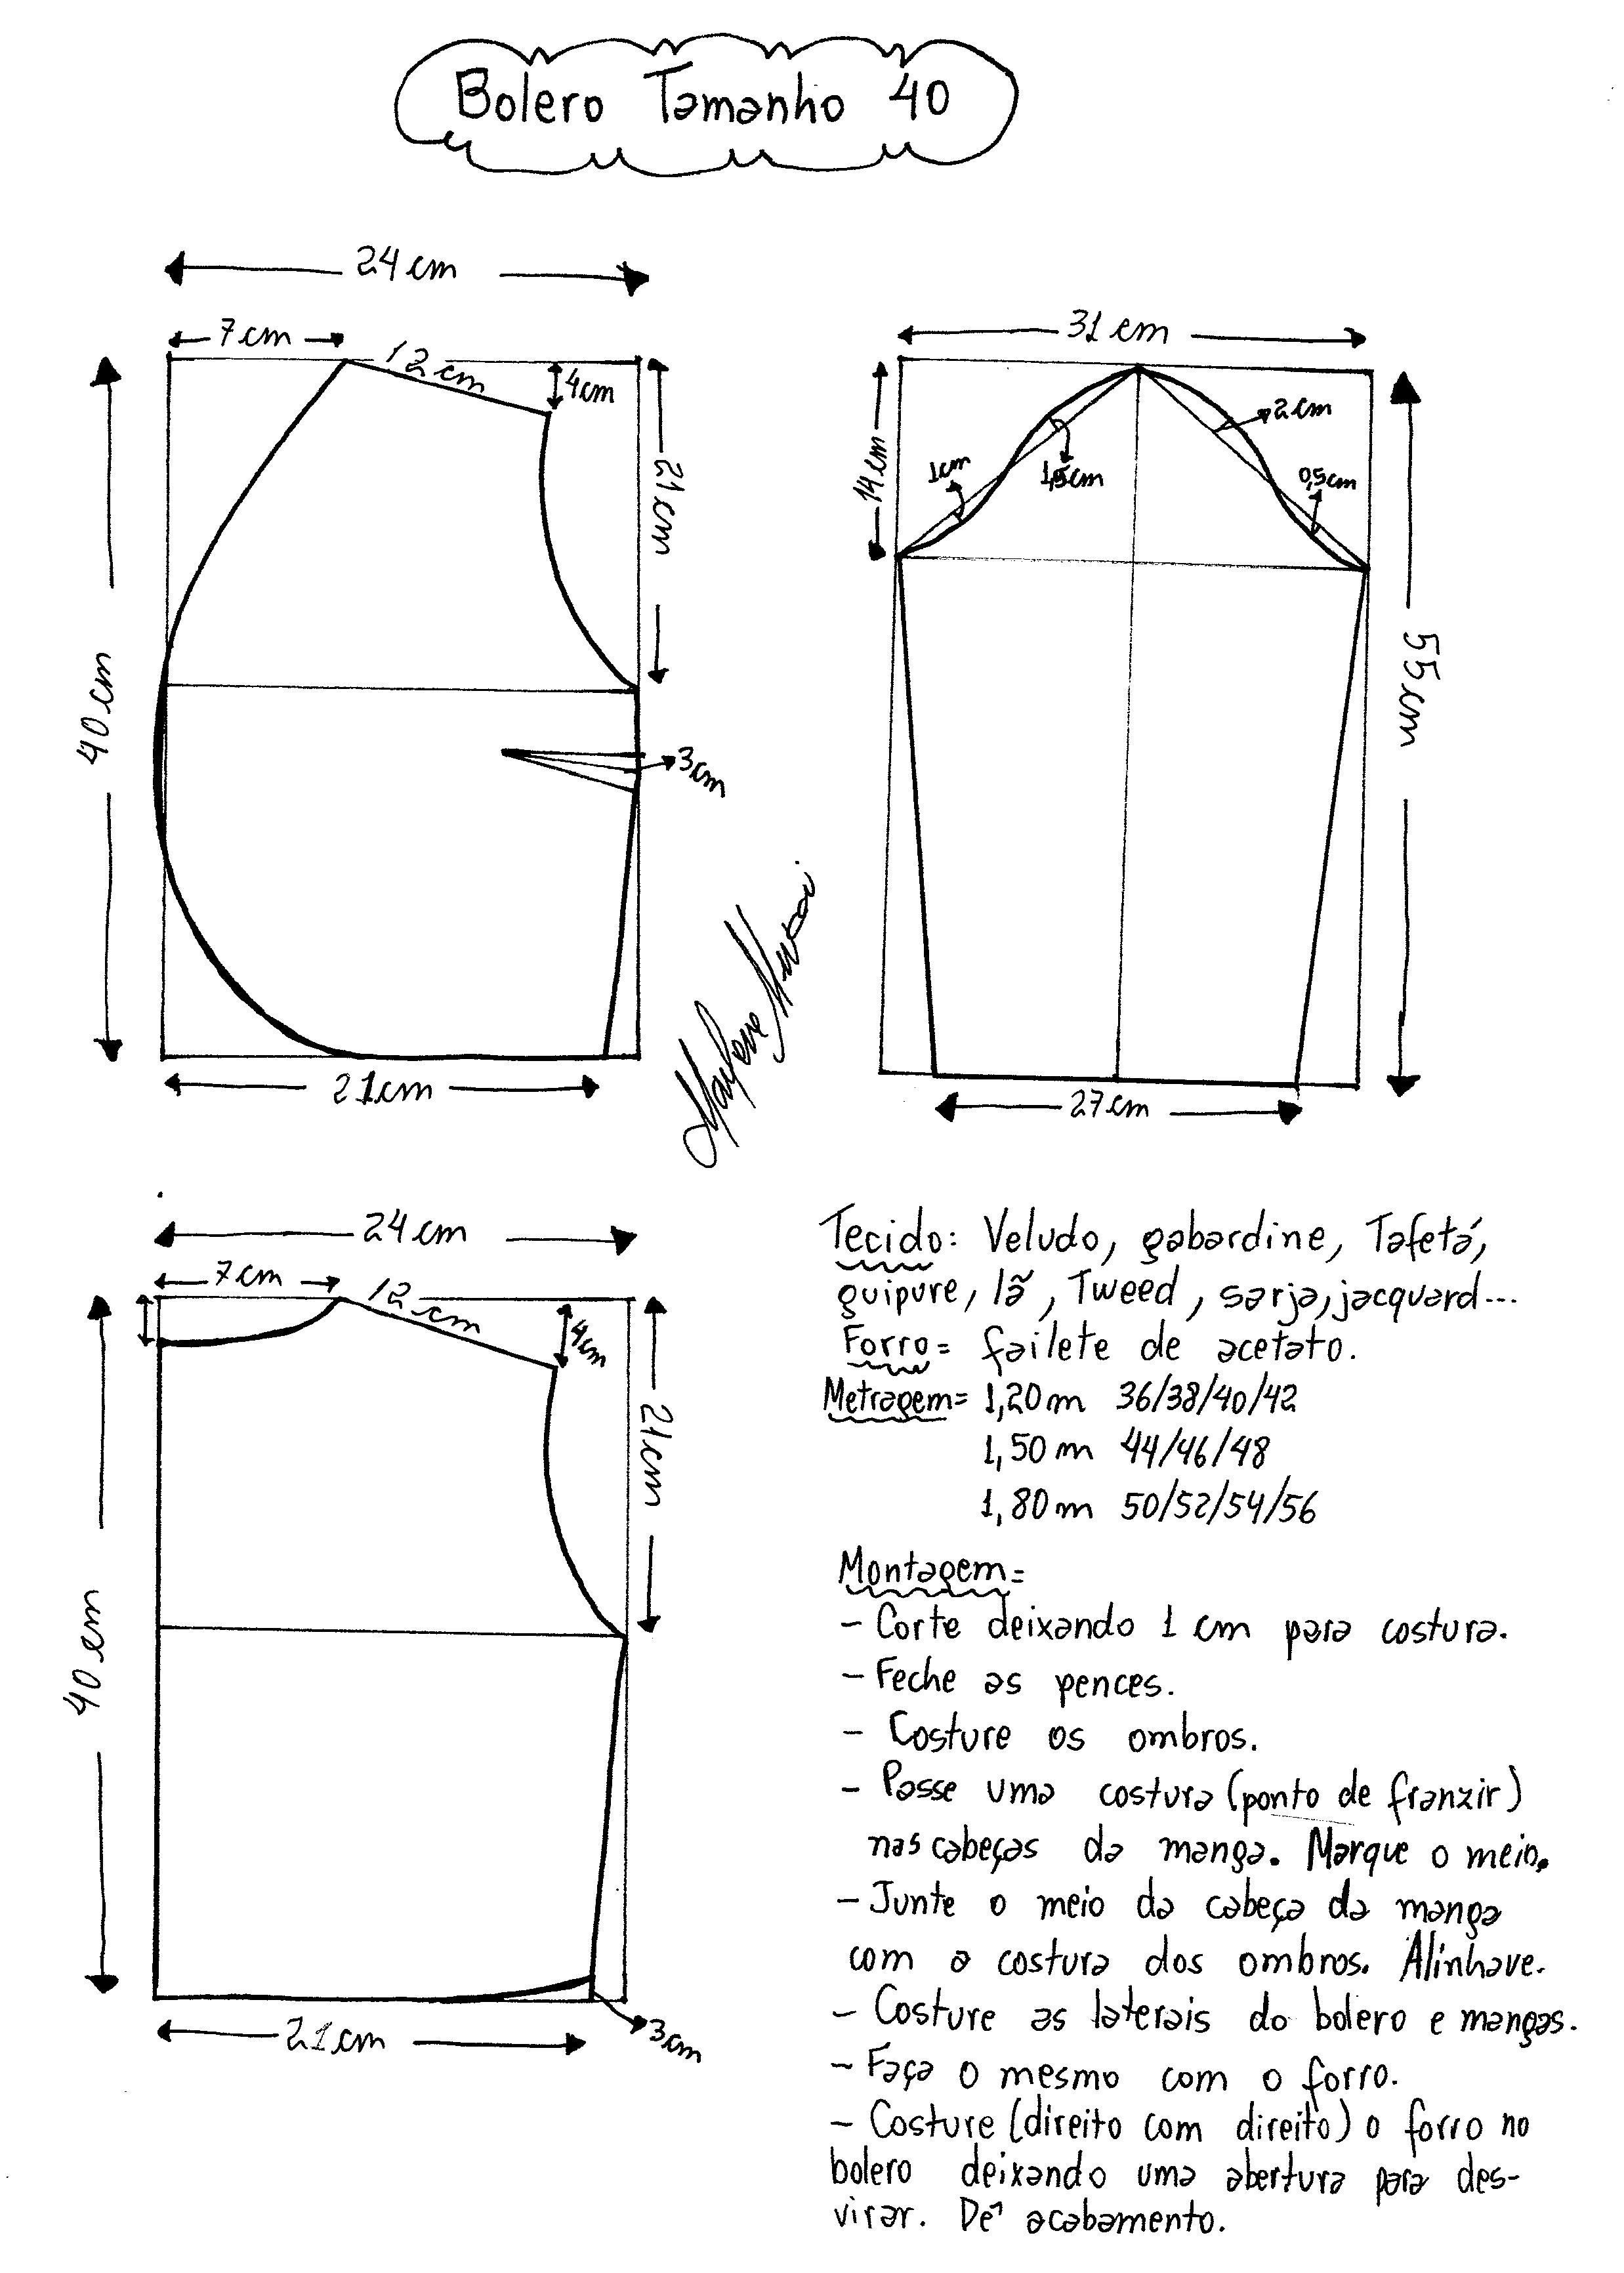 Bolero Tamanho 40
24 cm
7 cm
12 cm
4 cm
21 cm
40 cm
3 cm
21 cm
31 cm
14 cm
1 cm
1,5 cm
2 cm
0,5 cm
55 cm
27 cm
24 cm
7 cm
12 cm
4 cm
21 cm
40 cm
21 cm
3 cm
Tecido: Veludo, gabardine, Tafetá,
guipure, lã, Tweed, sarja, jacquard...
Forro = failete de acetato.
Metragem = 1,20 m 36/38/40/42
1,50 m 44/46/48
1,80 m 50/52/54/56
Montagem =
- Corte deixando 1 cm para costura.
- Feche as pences.
- Costure os ombros.
- Passe uma costura (ponto de franzir)
nas cabeças da manga. Marque o meio.
- Junte o meio da cabeça da manga
com a costura dos ombros. Alinhave.
- Costure as laterais do bolero e mangas.
- Faça o mesmo com o forro.
- Costure (direito com direito) o forro no
bolero deixando uma abertura para des-
virar. Dê acabamento.